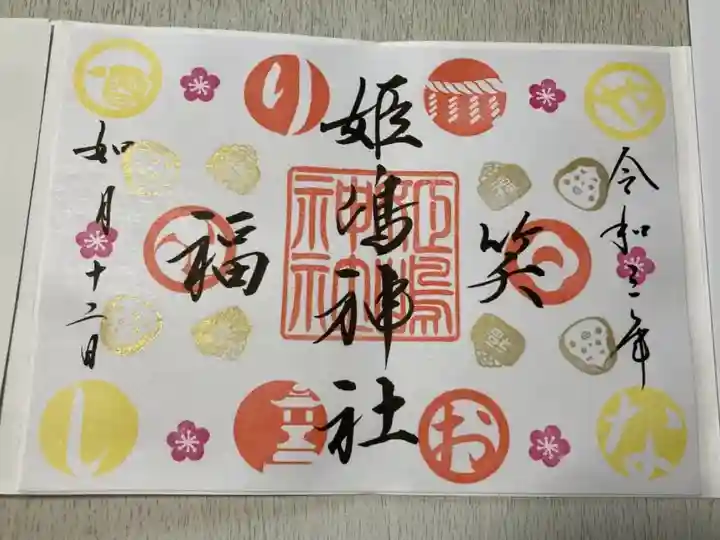 令和三年
笑
姫嶋神社
福
如月十二日
や
り
な
お
し